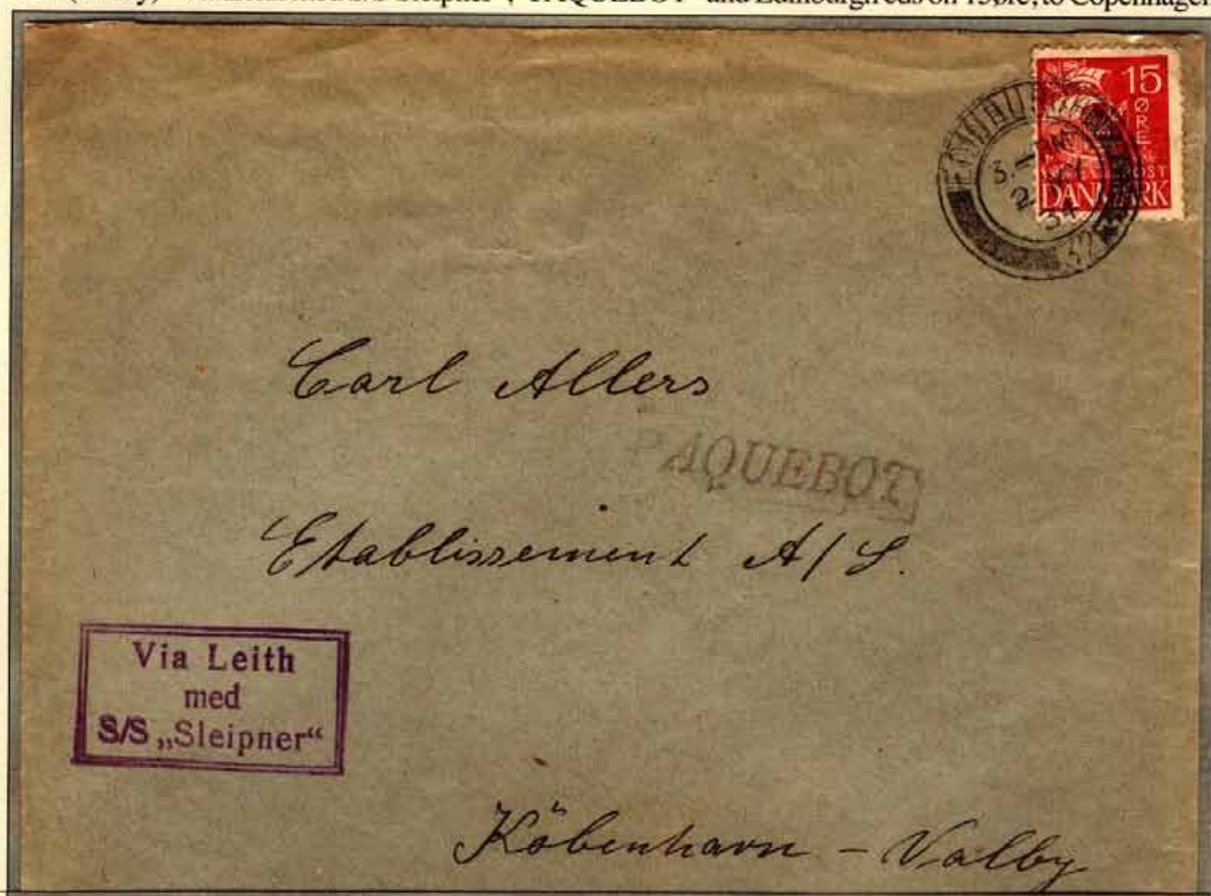 S/S Sleipner", "PAQUEBOT" and Edinburgh cds on 15øre, to Copenhagen
15
ØRE
DANMARK
32
Carl Allers
PAQUEBOT
Etablissement A/S.
Via Leith
med
S/S „Sleipner“
Köbenhavn - Valby